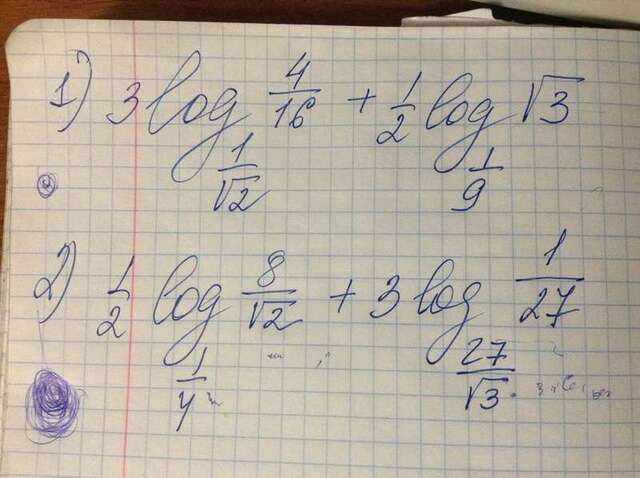 1) 3 log_{1/√2} 4/16 + 1/2 log_{1/9} √3
2) 1/2 log_{1/4} 8/√2 + 3 log_{27/√3} 1/27